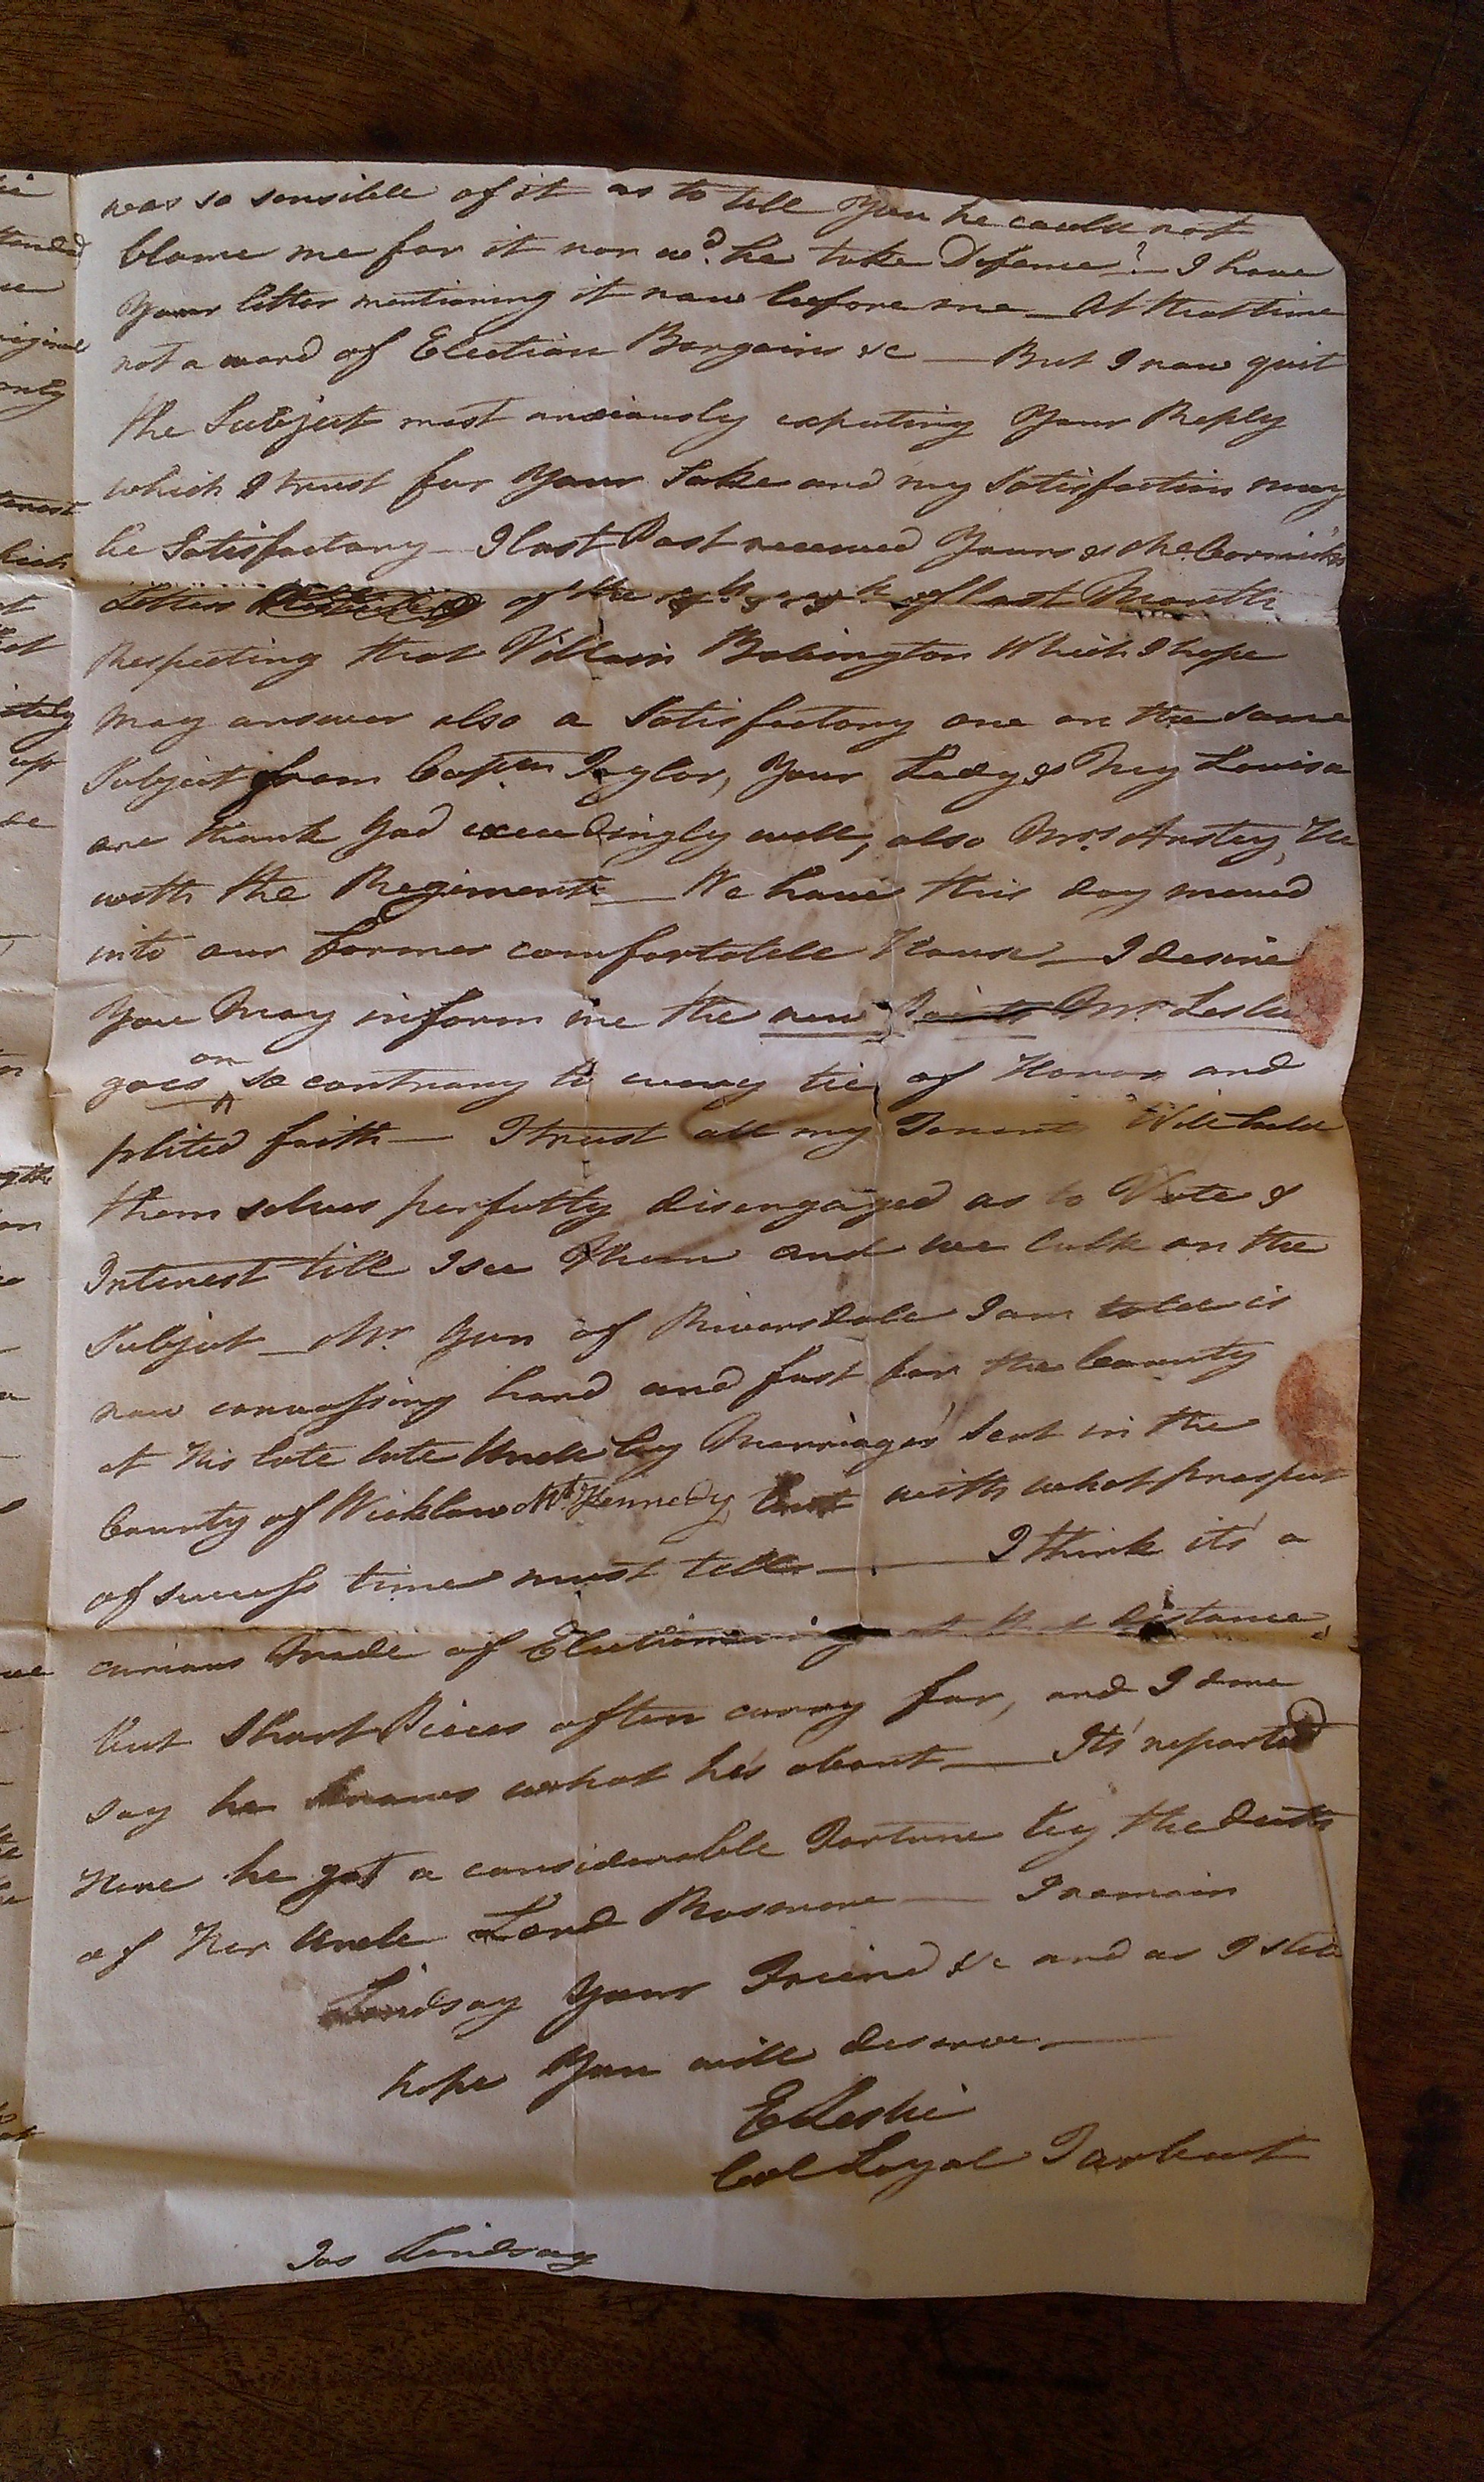 was so sensible of it as to tell you he could not
blame me for it nor wd. he take Defence? I have
Your letter mentioning it now before me — At that time
not a word of Election Bargains &c — But I now quit
the Subject most anxiously expecting Your Reply
which I trust for Your Sake and my Satisfaction may
be Satisfactory — I last Post received Yours & McCormick's
Letters of the of last Month
Respecting that Villain Babington Which I hope
may answer also a Satisfactory one on the same
Subject from Captn Taylor, Your Lady & My Louisa
are thank God exceedingly well, also Mrs. Anstey, He
with the Regiment — We have this day moved
into our former comfortable House — I desire
You May inform me the new Mr. Leslie
goes on so contrary to every tie of Honor and
plited faith — I trust all my Tenants Will hold
them selves perfectly disengaged as to Vote &
Interest till I see Them and we talk on the
Subject — Mr. Gun of Riversdale I am told is
now canvassing hard and fast for the County
at His late late Uncle by Marriage's Seat in the
County of Wicklow Mt. Kennedy but with what prospect
of success time must tell — I think it's a
curious Mode of Electioneering at that distance,
but Short Pieces often carry far, and I dare
say he knows what he's about — It's reported
Here he got a considerable Fortune by the death
of Her Uncle Lord Rossmore — I remain
Lindsay Your Friend &c and as I still
hope You will deserve —
E Leslie
Col Loyal Tarbert
Jas Lindsay